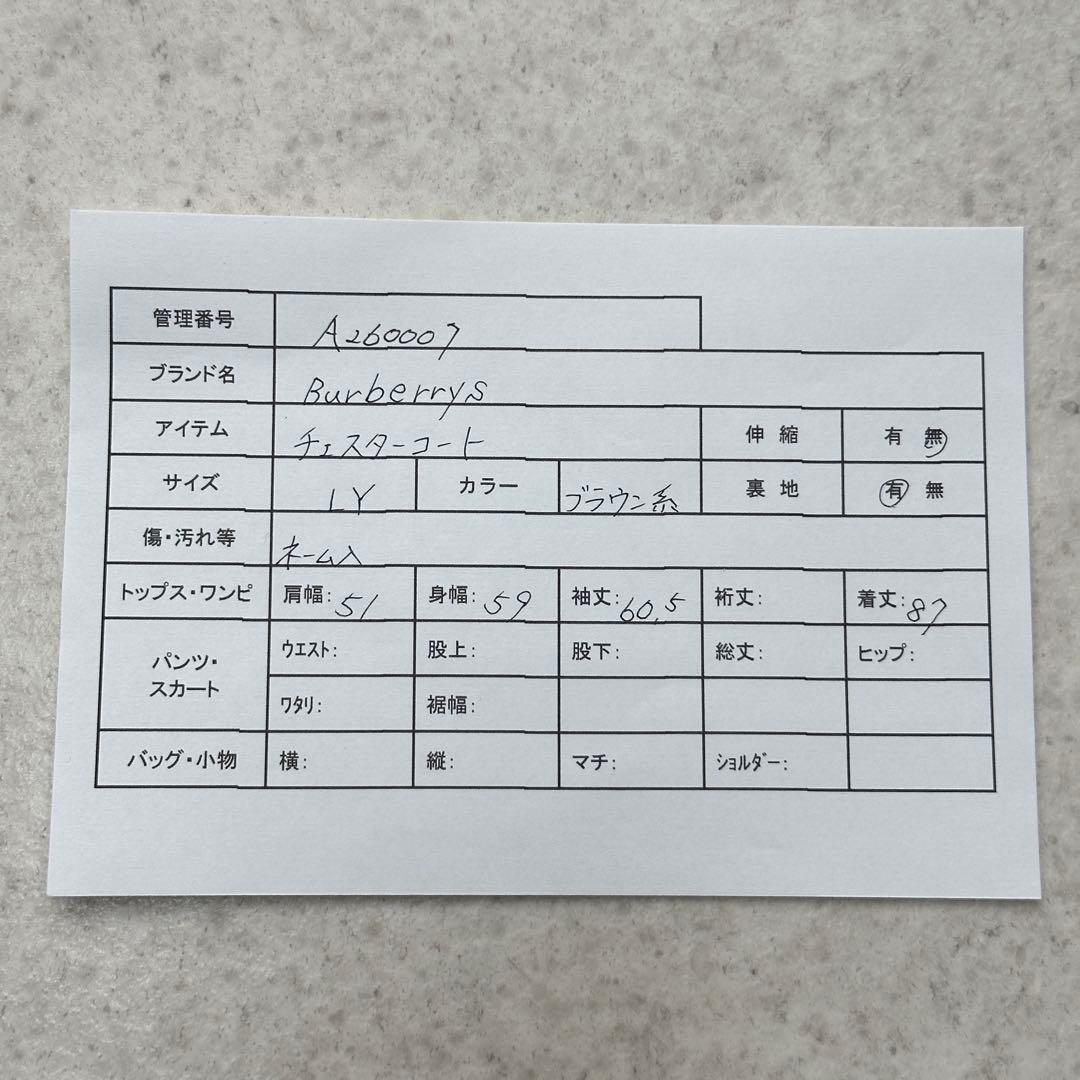 管理番号 A260007
ブランド名 Burberrys
アイテム チェスターコート 伸縮 有 無
サイズ LY カラー ブラウン系 裏地 有 無
傷・汚れ等 ネーム入
トップス・ワンピ 肩幅: 51 身幅: 59 袖丈: 60.5 裄丈: 着丈: 87
パンツ・スカート ウエスト: 股上: 股下: 総丈: ヒップ:
ワタリ: 裾幅:
バッグ・小物 横: 縦: マチ: ショルダー: